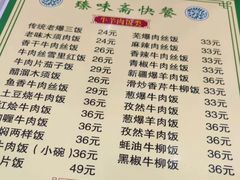 臻味斋快餐
牛羊肉饭类
传统老爆三饭 24元
老味木须肉饭 29元
香干牛肉丝饭 33元
牛肉丝雪里红饭 26元
牛肉片茄子饭 29元
醋溜木须饭 29元
鱼香牛肉丝饭 33元
土豆烧牛肉饭 36元
红烧牛肉饭 36元
焖两样饭 36元
肉饭（小碗）36元
片饭 49元
芜爆肉丝饭 33元
麻辣肉丝饭 33元
香辣肉丝饭 33元
青椒牛肉丝饭 33元
新疆爆羊肉饭 33元
滑炒香芹牛柳饭 33元
葱爆牛肉饭 33元
孜然牛肉饭 33元
葱爆羊肉饭 36元
孜然羊肉饭 36元
蚝油牛柳饭 36元
黑椒牛柳饭 36元